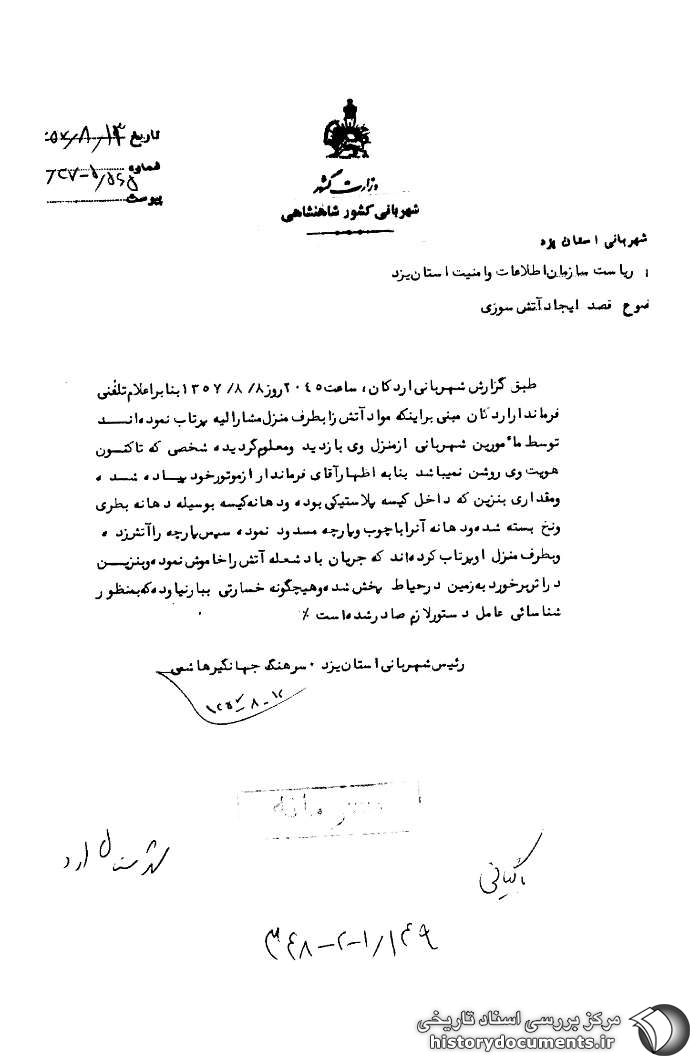 وزارت کشور
شهربانی کشور شاهنشاهی
تاریخ ۵۷/۸/۱۳
شماره
پیوست
شهربانی استان یزد
ریاست سازمان اطلاعات وامنیت استان یزد
ضوع قصد ایجاد آتش سوزی
طبق گزارش شهربانی اردکان، ساعت ۲۰۴۵ روز ۸/ ۸/ ۱۳۵۷ بنا براعلام تلفنی
فرماندار اردکان مبنی براینکه مواد آتش زا بطرف منزل مشارالیه پرتاب نموده اند
توسط مأمورین شهربانی ازمنزل وی بازدید ومعلوم گردیده شخصی که تاکنون
هویت وی روشن نمیباشد بنابه اظهارآقای فرماندار ازموتورخود پیاده شده
ومقداری بنزین که داخل کیسه پلاستیکی بوده ودهانه کیسه بوسیله دهانه بطری
ونخ بسته شده ودهانه آنرا باچوب وپارچه مسدود نموده سپس پارچه راآتش زده
وبطرف منزل اوپرتاب کرده اند که جریان باد شعله آتش راخاموش نموده وبنزین
دراثربرخورد به زمین درحیاط پخش شده وهیچگونه خسارتی ببارنیاوده که بمنظور
شناسائی عامل دستورلازم صادرشده است ٪
رئیس شهربانی استان یزد ۰ سرهنگ جهانگیرهاشمی
۱۳۵۷-۸-۱۲
محرمانه
بایگانی
۳۴۸-۲-۱/۱۴۹
مرکز بررسی اسناد تاریخی
historydocuments.ir